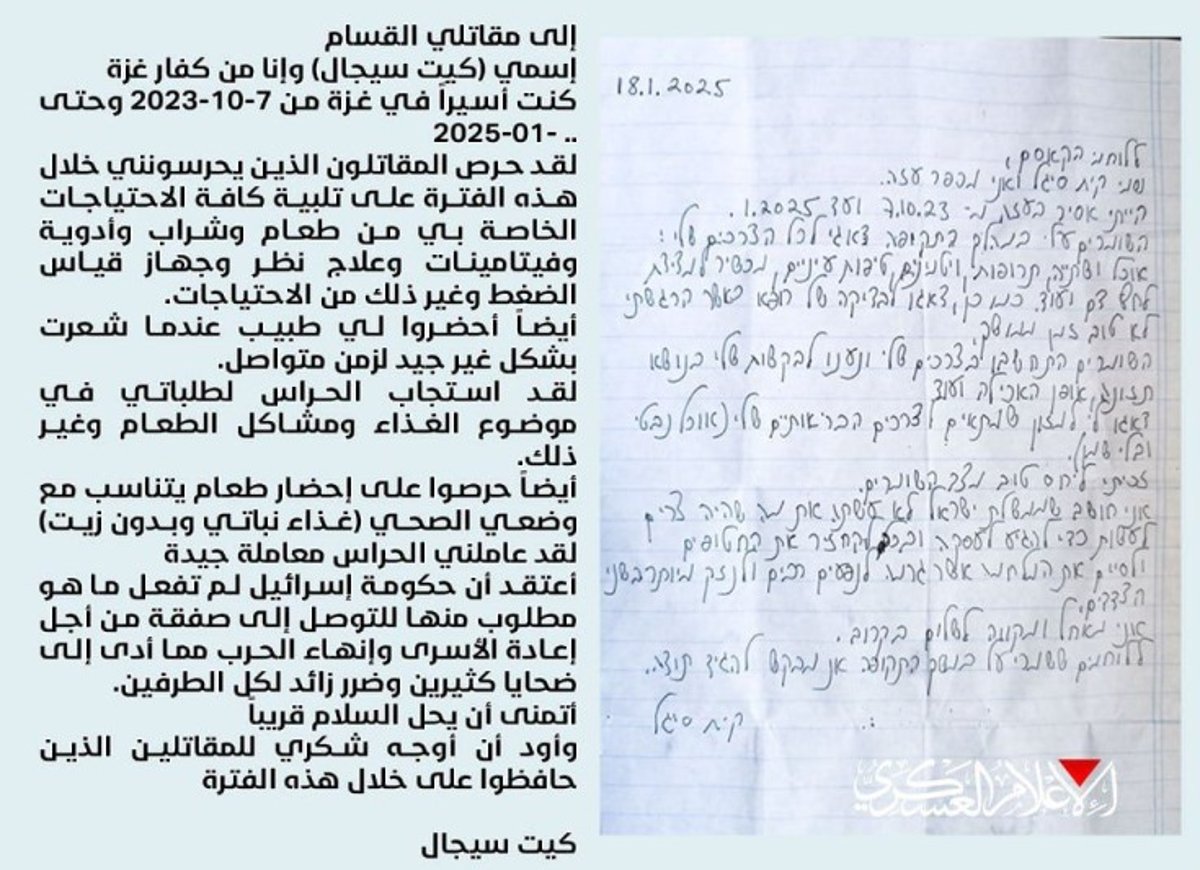 إلى مقاتلي القسام
إسمي (كيت سيجال) وإنا من كفار غزة
كنت أسيراً في غزة من 7-10-2023 وحتى
.. -01-2025
لقد حرص المقاتلون الذين يحرسونني خلال
هذه الفترة على تلبية كافة الاحتياجات
الخاصة بي من طعام وشراب وأدوية
وفيتامينات وعلاج نظر وجهاز قياس
الضغط وغير ذلك من الاحتياجات.
أيضاً أحضروا لي طبيب عندما شعرت
بشكل غير جيد لزمن متواصل.
لقد استجاب الحراس لطلباتي في
موضوع الغذاء ومشاكل الطعام وغير
ذلك.
أيضاً حرصوا على إحضار طعام يتناسب مع
وضعي الصحي (غذاء نباتي وبدون زيت)
لقد عاملني الحراس معاملة جيدة
أعتقد أن حكومة إسرائيل لم تفعل ما هو
مطلوب منها للتوصل إلى صفقة من أجل
إعادة الأسرى وإنهاء الحرب مما أدى إلى
ضحايا كثيرين وضرر زائد لكل الطرفين.
أتمنى أن يحل السلام قريباً
وأود أن أوجه شكري للمقاتلين الذين
حافظوا على خلال هذه الفترة
كيت سيجال
18.1.2025
ללוחמי הקאסם,
שמי קית סיגל ואני מכפר עזה.
הייתי אסיר בעזה מ- 7.10.23 ועד 1.2025.
השומרים עלי במהלך התקופה דאגו לכל הצרכים שלי:
אוכל ושתיה, תרופות, ויטמינים, טיפות עיניים, מכשיר למדידת
לחץ דם ועוד. כמו כן, דאגו לבדיקה של רופא כאשר הרגשתי
לא טוב זמן ממושך.
השומרים התחשבו בצרכים שלי ונענו לבקשות שלי בנושא
תזונה, אופן האכילה ועוד
דאגו לי למזון שמתאים לצרכים הבריאותיים שלי (אוכל נבטי
ובלי שמן).
זכיתי ליחס טוב מצד השומרים.
אני חושב שממשלת ישראל לא עשתה את מה שהיה צריך
לעשות כדי להגיע לעסקה ובכך להחזיר את החטופים
ולסיים את המלחמה אשר גרמה לנפגעים רבים ולנזק מיותר בשני
הצדדים.
אני מאחל ומקווה לשלום בקרוב.
ללוחמים ששמרו עלי במשך התקופה אני מבקש להגיד תודה.
קית סיגל
الإعلام العسكري